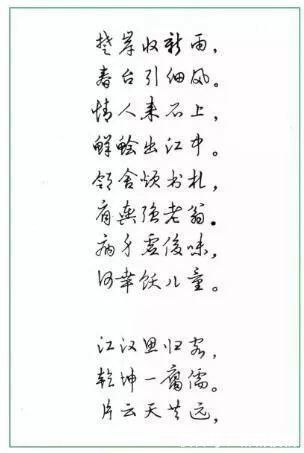 楚岸收新雨，
春台引细风。
情人来石上，
鲜鲙出江中。
邻舍烦书札，
肩舆强老翁。
病身虚俊味，
何幸饫儿童。
江汉思归客，
乾坤一腐儒。
片云天共远，